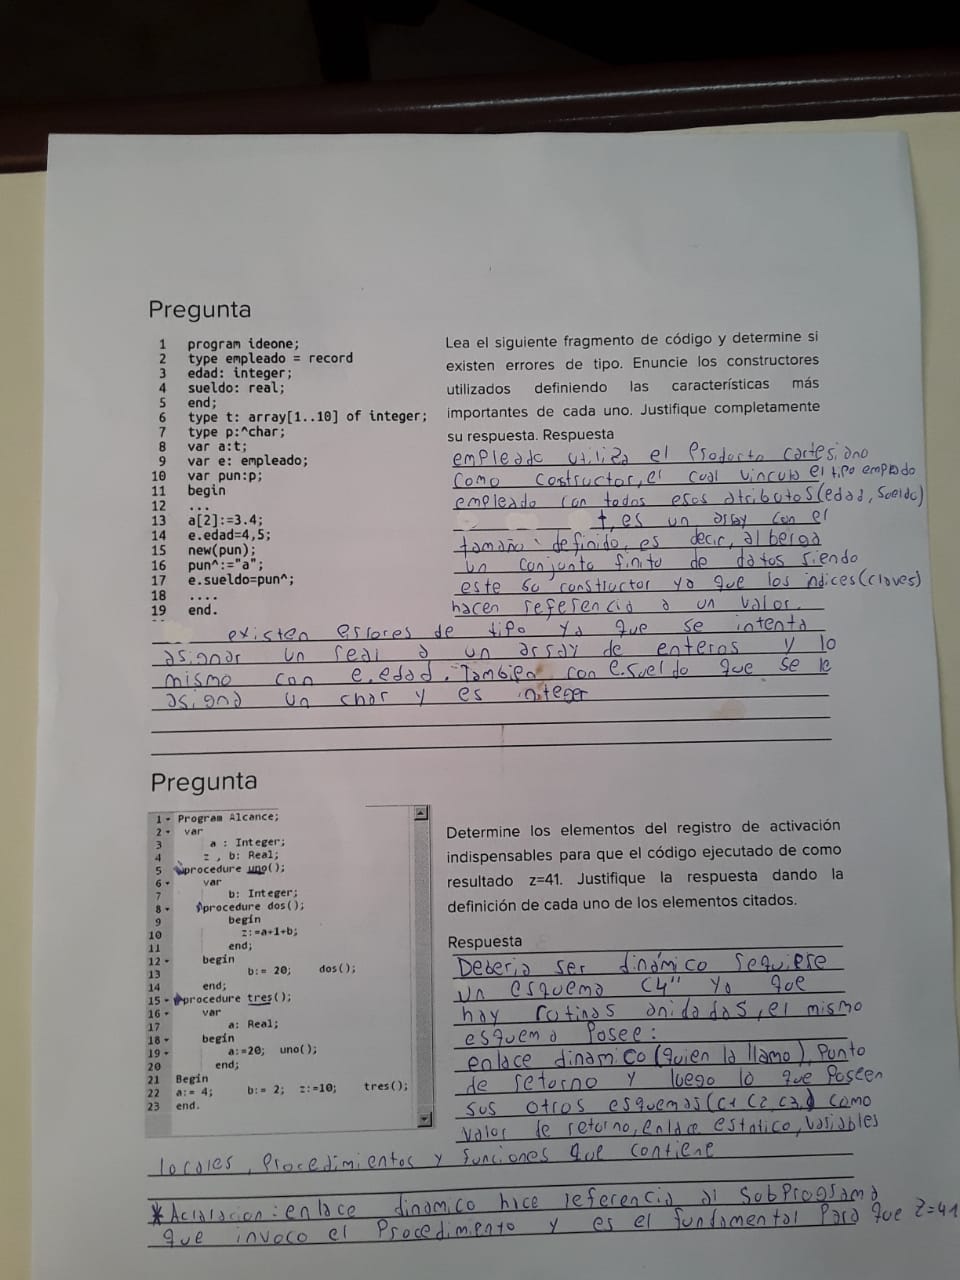 Pregunta
1 program ideone;
2 type empleado = record
3 edad: integer;
4 sueldo: real;
5 end;
6 type t: array[1..10] of integer;
7 type p:^char;
8 var a:t;
9 var e: empleado;
10 var pun:p;
11 begin
12 ...
13 a[2]:=3.4;
14 e.edad=4,5;
15 new(pun);
16 pun^:="a";
17 e.sueldo=pun^;
18 ....
19 end.
Lea el siguiente fragmento de código y determine si
existen errores de tipo. Enuncie los constructores
utilizados definiendo las características más
importantes de cada uno. Justifique completamente
su respuesta. Respuesta
empleado utiliza el producto cartesiano
como constructor, el cual vincula el tipo empleado
empleado con todos esos atributos (edad, sueldo)
t, es un array con el
tamaño definido, es decir, alberga
un conjunto finito de datos siendo
este su constructor ya que los indices (claves)
hacen referencia a un valor.
existen errores de tipo ya que se intenta
asignar un real a un array de enteros y lo
mismo con e.edad. También con e.sueldo que se le
asigna un char y es integer
Pregunta
1 Program Alcance;
2 var
3 a : Integer;
4 z , b: Real;
5 procedure uno();
6 var
7 b: Integer;
8 procedure dos();
9 begin
10 z:=a+1+b;
11 end;
12 begin
13 b:= 20; dos();
14 end;
15 procedure tres();
16 var
17 a: Real;
18 begin
19 a:=20; uno();
20 end;
21 Begin
22 a:= 4; b:= 2; z:=10; tres();
23 end.
Determine los elementos del registro de activación
indispensables para que el código ejecutado de como
resultado z=41. Justifique la respuesta dando la
definición de cada uno de los elementos citados.
Respuesta
Deberia ser dinámico requiere
un esquema C4" ya que
hay rutinas anidadas, el mismo
esquema posee:
enlace dinamico (quien la llamo), Punto
de retorno y luego lo que poseen
sus otros esquemas (C1 C2, C3,) como
valor de retorno, enlace estatico, variables
locales, Procedimientos y funciones que contiene
*Aclaracion: enlace dinamico hace referencia al SubPrograma
que invoco el Procedimiento y es el fundamental para que z=41